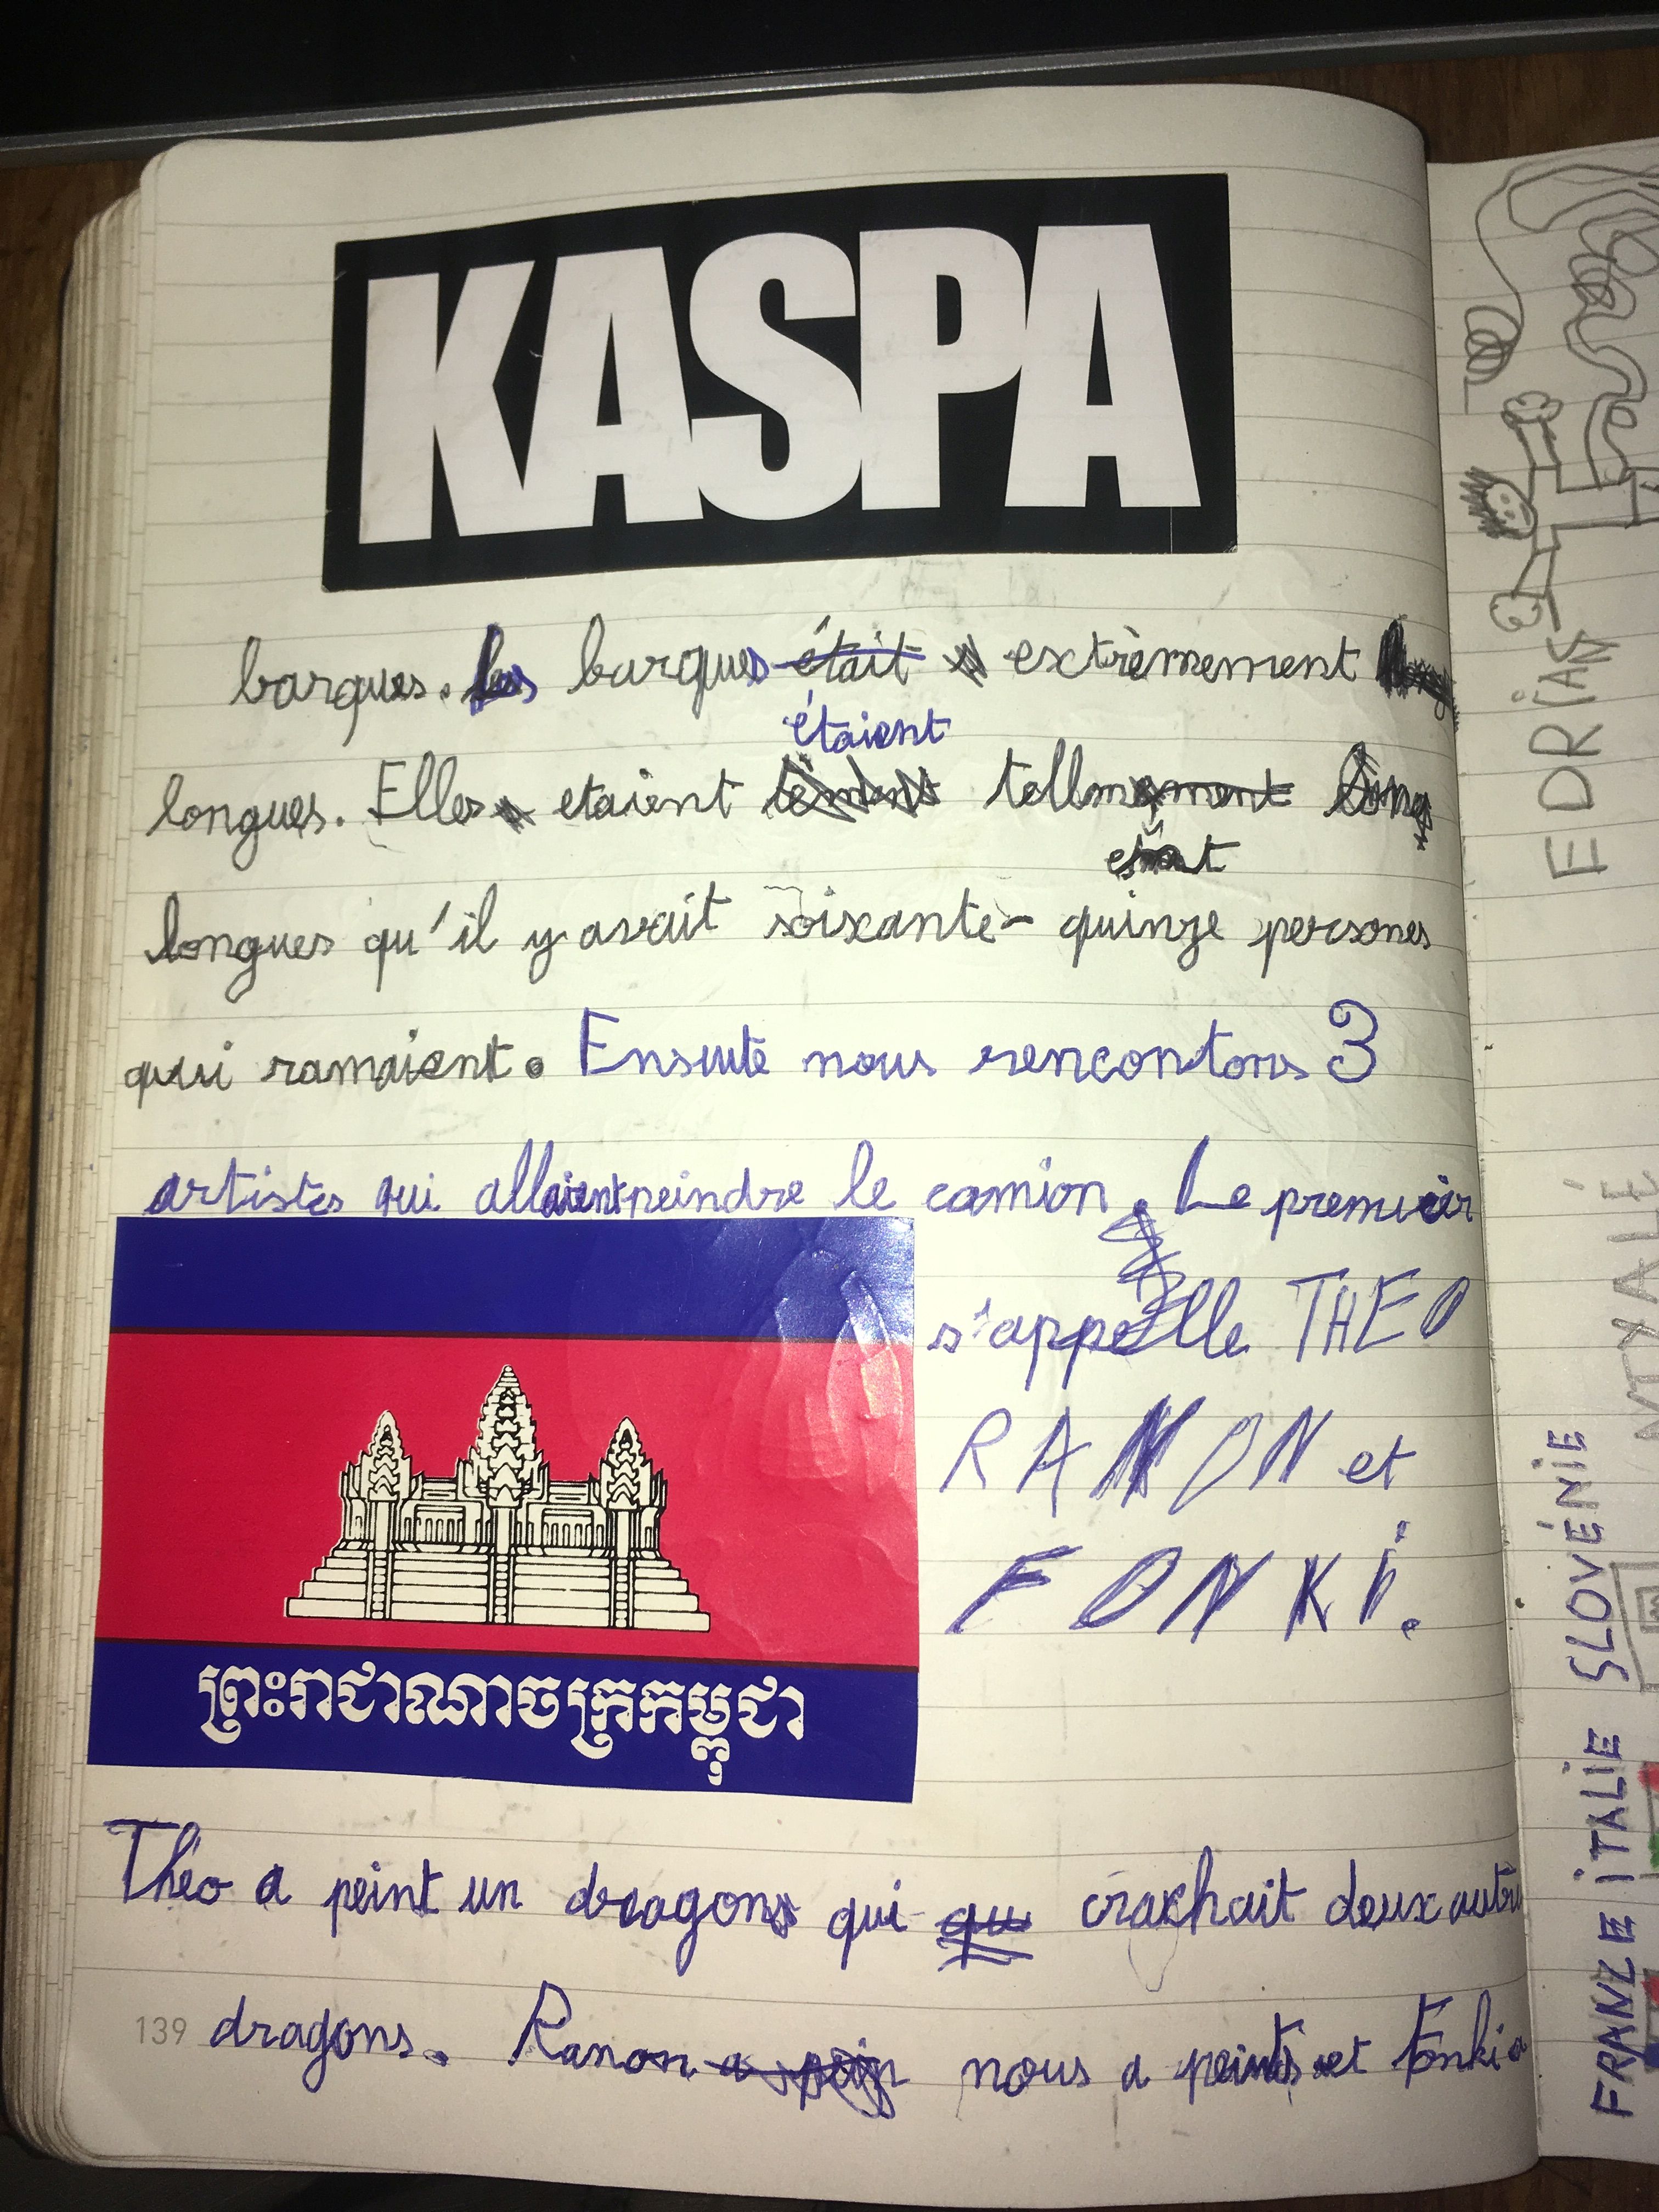 KASPA
barques. Les barques était extrèmement
étaient
longues. Elles etaient tellmement long
longues qu'il y avait soixante-quinze persones
qui ramaient. Ensuite nous rencontons 3
artistes qui allaient peindre le camion. Le premier
s'appelle THEO
RANON et
FONKi.
ព្រះរាជាណាចក្រកម្ពុជា
Théo a peint un dragons qui qu crakhait deux autre
139 dragons. Ranon nous a peints et Fonki a
EDRiAS
FRANZE iTALiE SLOVÉNiE